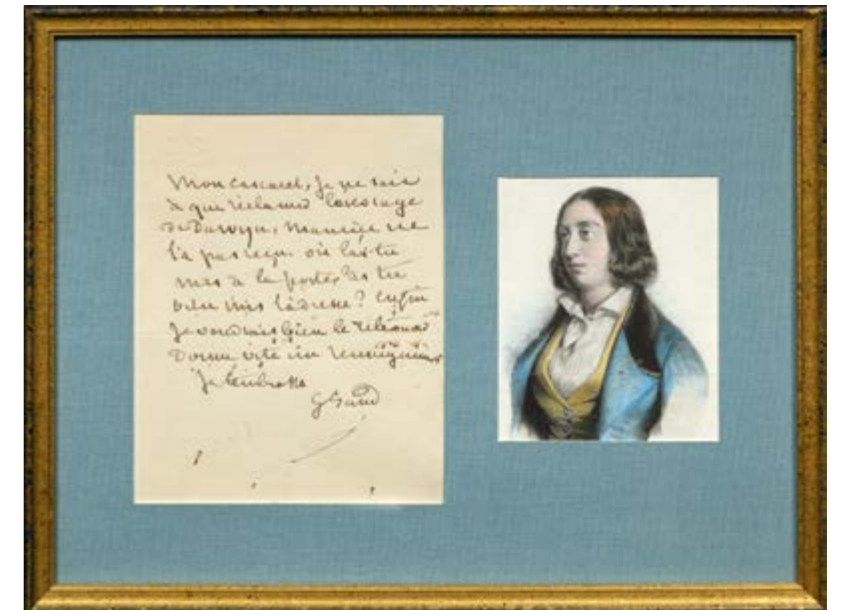 Mon cascaret, je ne sais
à qui réclamer l'ouvrage
de Darwin, Maurice ne
l'a pas reçu. où l'as-tu
mis à la poste, as tu
bien mis l'adresse? enfin
je voudrais bien le retrouver
Donne vite un renseignement
Je t'embrasse
G Sand